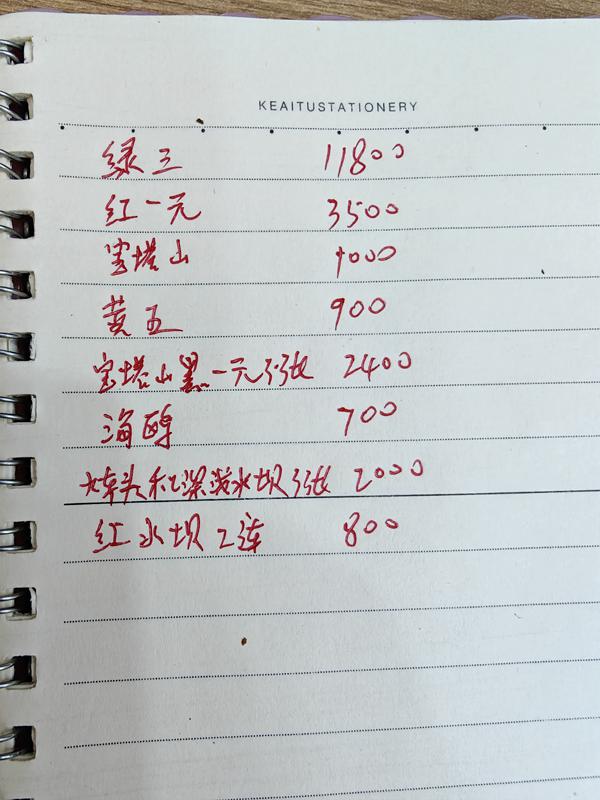 KEAITUSTATIONERY
绿三 11800
红一元 3500
宝塔山 1000
黄五 900
宝塔山黑一元3张 2400
海鸥 700
火车头和深浅水坝3张 2000
红水坝2连 800